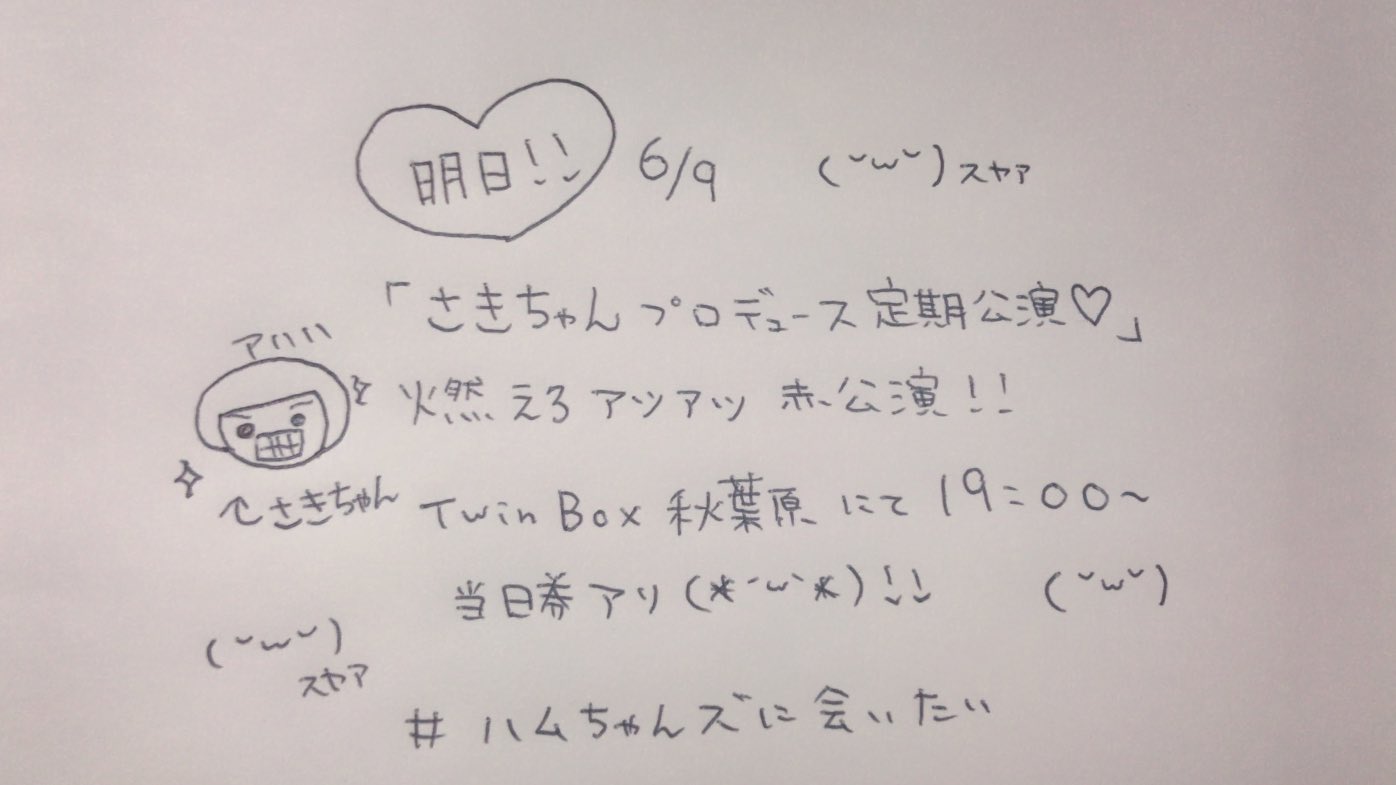 明日!! 6/9 (˘ω˘)スヤァ
「さきちゃんプロデュース定期公演♡」
アハハハ
燃えろアツアツ赤公演!!
↑さきちゃん
Twin Box 秋葉原 にて 19:00~
当日券アリ(*´ω`*)!!
(˘ω˘)
(˘ω˘)
スヤァ
#ハムちゃんズに会いたい